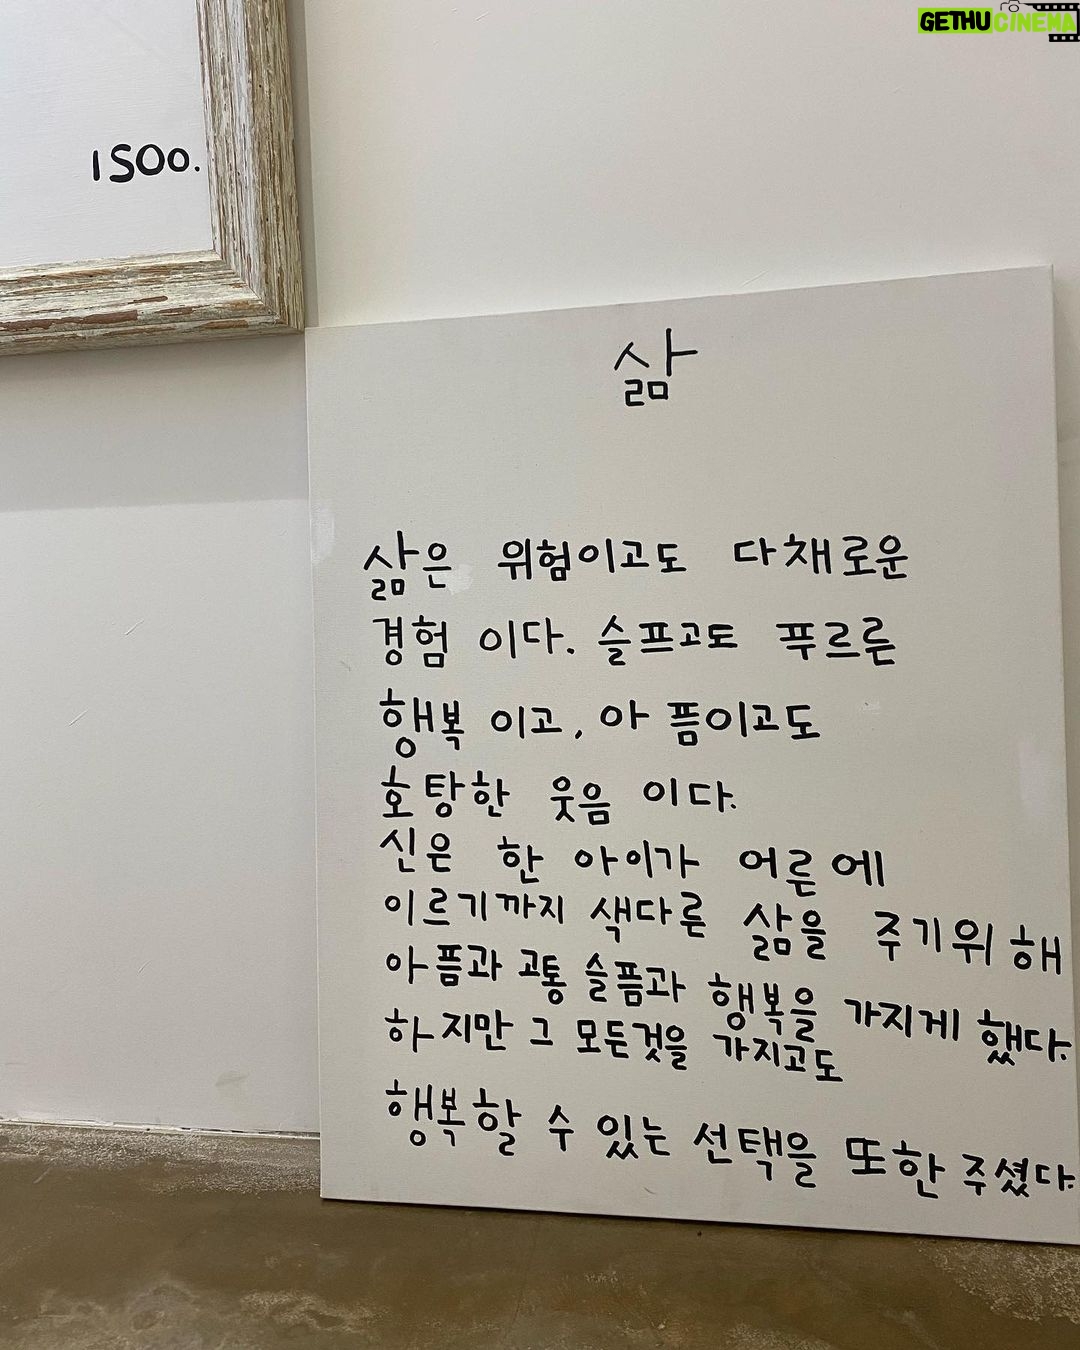 GETHUCINEMA
ISOO.
삶
삶은 위험이고도 다채로운
경험 이다. 슬프고도 푸르른
행복 이고, 아픔이고도
호탕한 웃음 이다.
신은 한 아이가 어른에
이르기까지 색다른 삶을 주기위해
아픔과 고통 슬픔과 행복을 가지게 했다.
하지만 그 모든것을 가지고도
행복할 수 있는 선택을 또한 주셨다.